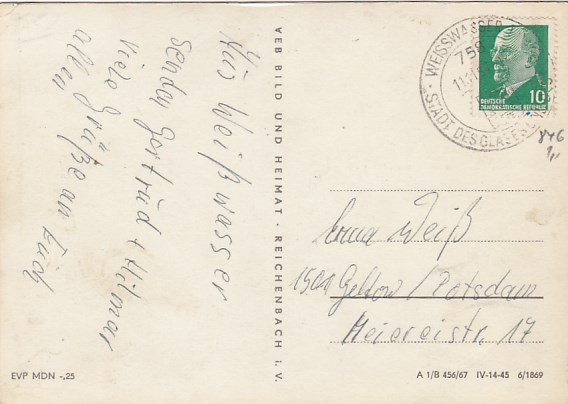 Aus Weißwasser
senden Gertrud + Hilmar
viele Grüße an Euch
allen
VEB BILD UND HEIMAT · REICHENBACH i. V.
WEISSWASSER
STADT DES GLASES
DEUTSCHE
DEMOKRATISCHE REPUBLIK
10
Erna Weiß
1501 Geltow/Potsdam
Meiereistr. 17
EVP MDN -,25
A 1/B 456/67 IV-14-45 6/1869